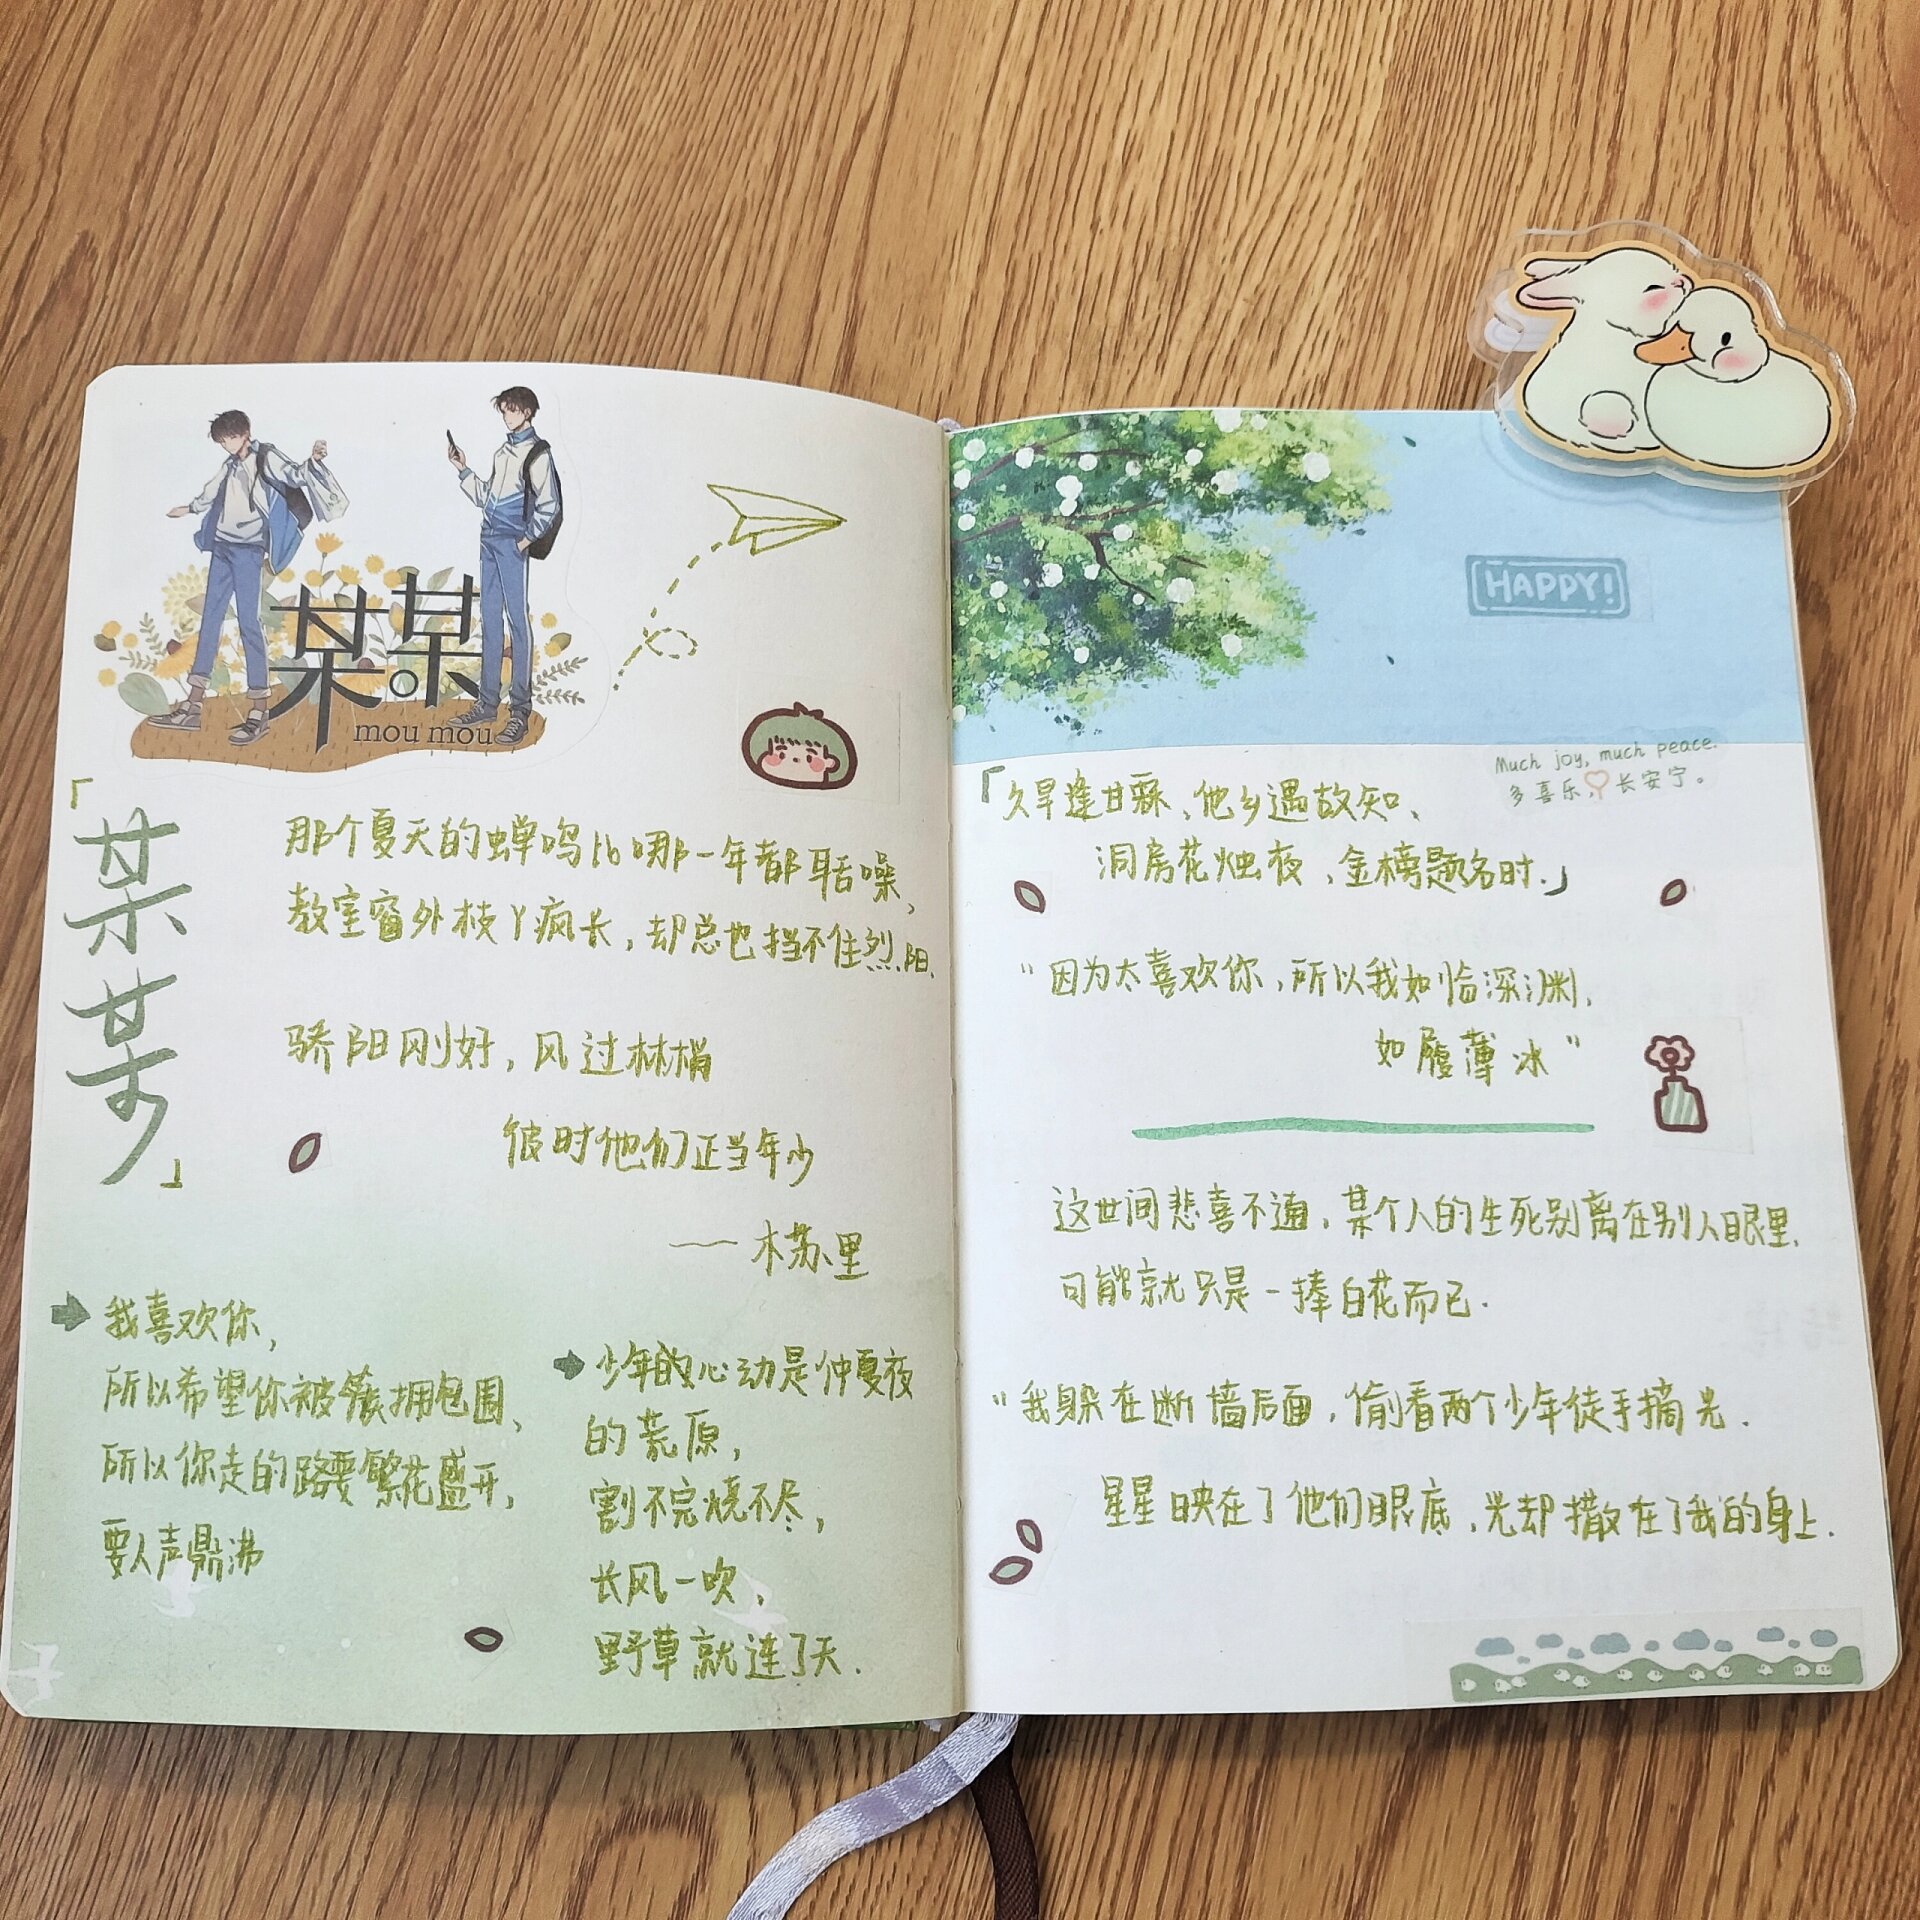 某某
mou mou
「某某」
那个夏天的蝉鸣比哪一年都聒噪,
教室窗外枝丫疯长,却总也挡不住烈阳.
骄阳刚好,风过林梢
彼时他们正当年少
——木苏里
我喜欢你,
所以希望你被簇拥包围、
所以你走的路要繁花盛开,
要人声鼎沸
少年的心动是仲夏夜
的荒原,
割不完烧不尽,
长风一吹,
野草就连了天.
HAPPY!
Much joy, much peace.
多喜乐,长安宁。
「久旱逢甘霖、他乡遇故知、
洞房花烛夜、金榜题名时.」
"因为太喜欢你,所以我如临深渊,
如履薄冰"
这世间悲喜不通,某个人的生死别离在别人眼里、
可能就只是一捧白花而已.
"我躲在断墙后面,偷看两个少年徒手摘光.
星星映在了他们眼底,光却撒在了我的身上.